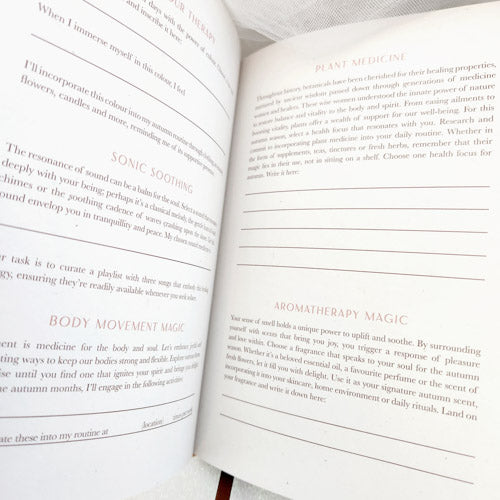 OUR THERAPY
days with the power of colour
and inscribe it here:
When I immerse myself in this colour, I feel
I'll incorporate this colour into my autumn routine through clothing,
flowers, candles and more, reminding me of its
SONIC SOOTHING
The resonance of sound can be a balm for the soul. Select
deeply with your being; perhaps it's a classical melody, the
chimes or the soothing cadence of waves crashing upon the shore. Let
ound envelop you in tranquillity and peace. My chosen sound
r task is to curate a playlist with three songs that
gy, ensuring they're readily available whenever you
BODY MOVEMENT MAGIC
ent is medicine for the body and soul. Let's embrace
ting ways to keep our bodies strong and flexible. Explore
ise until you find one that ignites your spirit and brings you
e autumn months, I'll engage in the following activities:
ate these into my routine at
(location)
PLANT MEDICINE
Throughout history, botanicals have been cherished for their healing properties,
ancient wisdom passed down through generations of medicine
and healers. These wise women understood the innate power of nature
to restore balance and vitality to the body and spirit. From easing ailments to
boosting vitality, plants offer a wealth of support for our well-being. For this
autumn season, select a health focus that resonates with you. Research and
commit to incorporating plant medicine into your daily routine. Whether in
the form of supplements, teas, tinctures or fresh herbs, remember that the
magic lies in their use, not in sitting on a shelf. Choose one health focus for
autumn. Write it here:
AROMATHERAPY MAGIC
Your sense of smell holds a unique power to uplift and soothe. By surrounding
yourself with scents that bring you joy, you trigger a response of pleasure
and love within. Choose a fragrance that speaks to your soul for the autumn
season. Whether it's a beloved essential oil, a favourite perfume or the scent of
fresh flowers, let it fill you with delight. Use it as your signature autumn scent,
incorporating it into your skincare, home environment or daily rituals. Land on
your fragrance and write it down here: